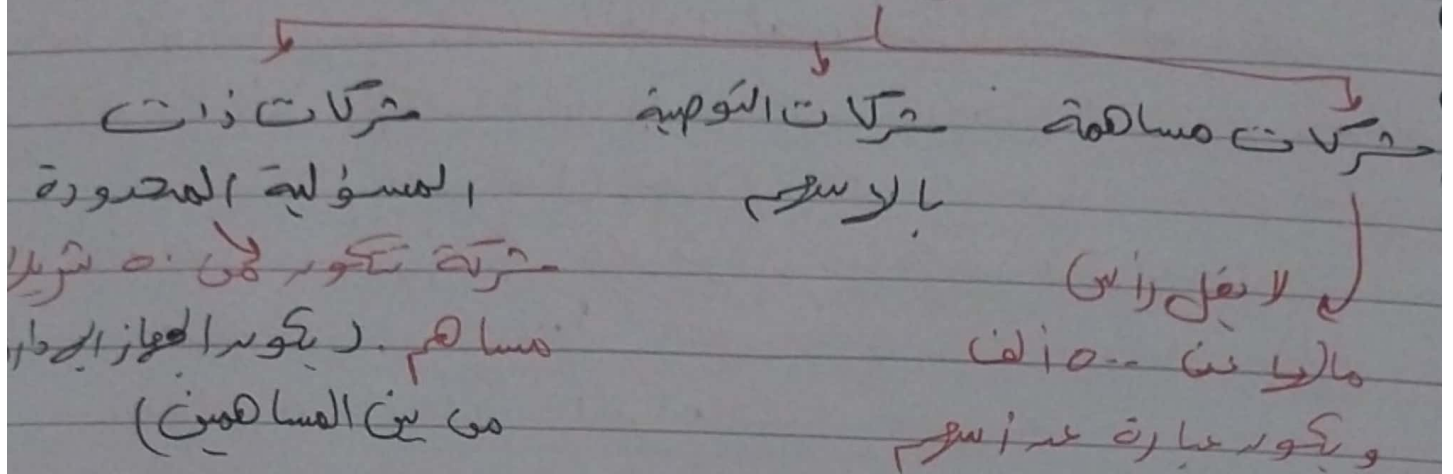 شركات مساهمة
لا يقل رأس
مالها عن ٥٠٠ ألف
ويكون عبارة عن أسهم
شركات التوصية
بالاسهم
شركات ذات
المسؤلية المحدودة
شركة تتكون من ٥٠ شريك
مساهم. (يكون الجهاز
من بين المساهمين)